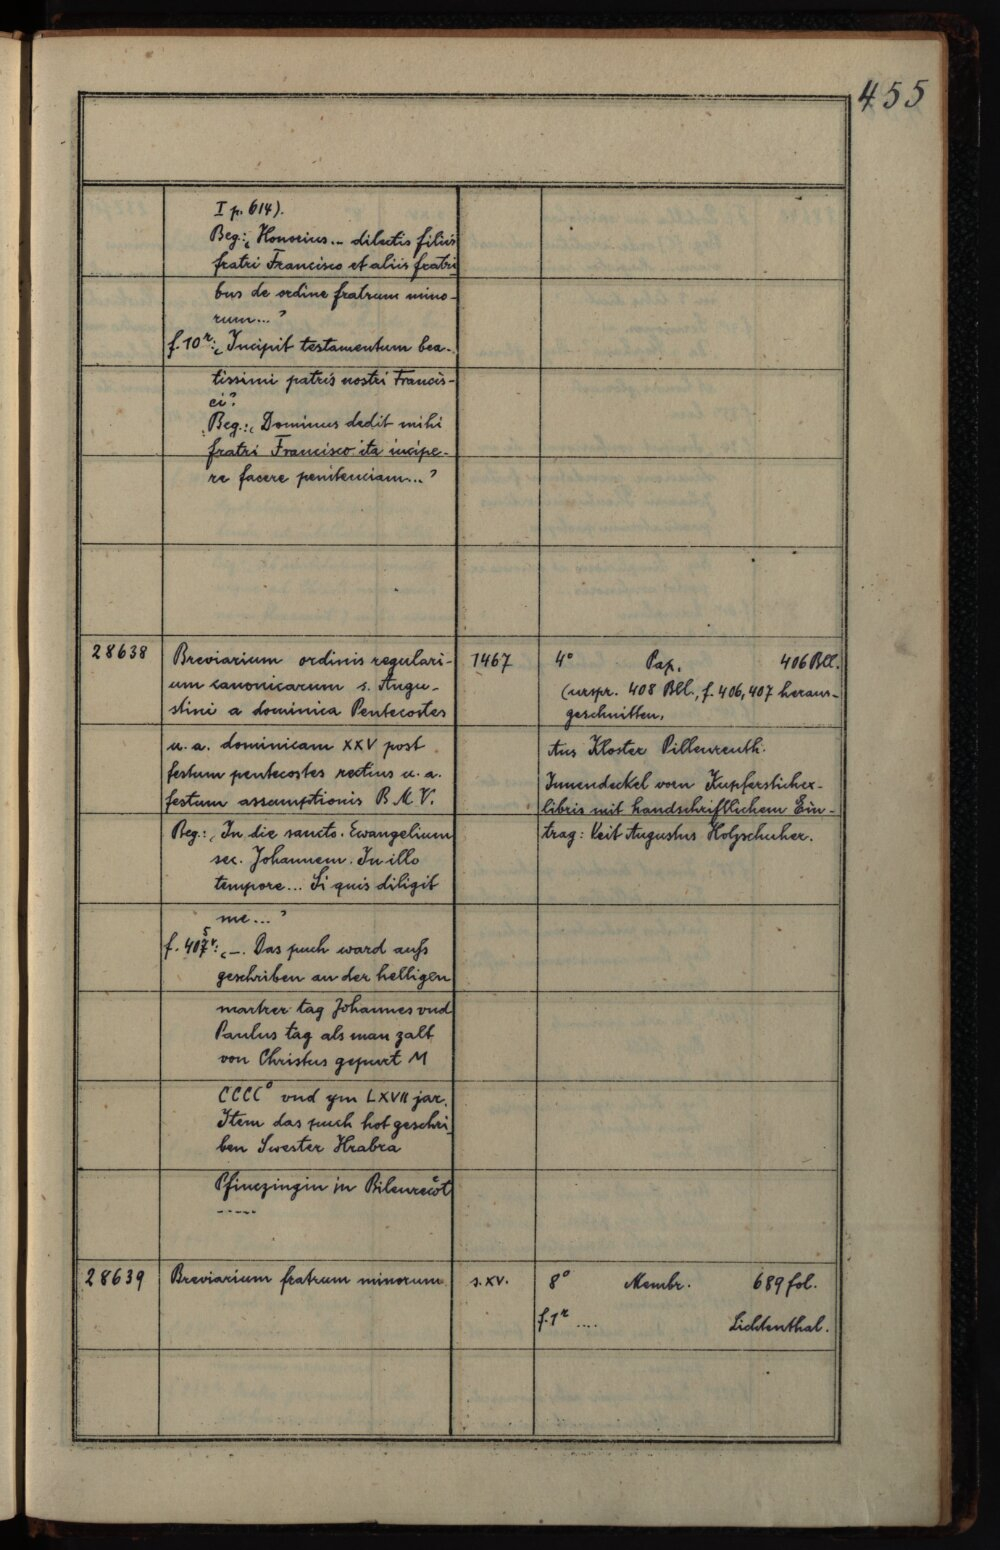 455
I p. 614).
Beg.: „Honorius... dilectis filiis
fratri Francisco et aliis fratri
bus de ordine fratrum mino-
rum..."
f. 10r: „Incipit testamentum bea-
tissimi patris nostri Francis-
ci"
Beg.: „Dominus dedit mihi
fratri Francisco ita incipe-
re facere penitenciam..."
28638 Breviarium ordinis regulari- 1467 4° Pap. 406 Bll.
um canonicarum s. Augu- (urspr. 408 Bll., f. 406, 407 heraus-
stini a dominica Pentecostes geschnitten.
u. a. dominicam XXV post Aus Kloster Pillenreuth.
festum pentecostes rectius u. a. Innendeckel vorn Kupferstichex-
festum assumptionis B. M. V. libris mit handschriftlichem Ein-
Beg.: „In die sancto. Ewangelium trag: Veit Augustus Holzschuher.
sec. Johannem. In illo
tempore... Si quis diligit
me..."
f. 405r: „–. Das puch ward aufs
geschriben an der helligen
martrer tag Johannes vnd
Paulus tag als man zalt
von Christus gepurt M
CCCC° vnd ym LXVII jar.
Item das puch hot geschri
ben Swester
Pfinczingin in
-----
28639 Breviarium fratrum minorum s. XV. 8° Membr. 689 fol.
f. 1r .... Lichtenthal.